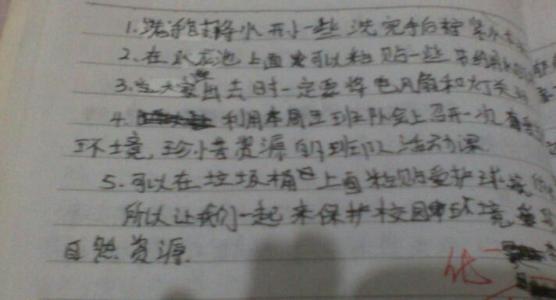 1.洗手时将水开小一些洗完手后拧紧水
2.在水龙池上面可以粘贴一些节约用水
3.当大家出去时一定要将电风扇和灯关
4.利用本周五班队会上召开一次有关
环境,珍惜资源的班队活动课
5.可以在垃圾桶上面粘贴爱护环境
所以让我们一起来保护校园环境,
自然资源.